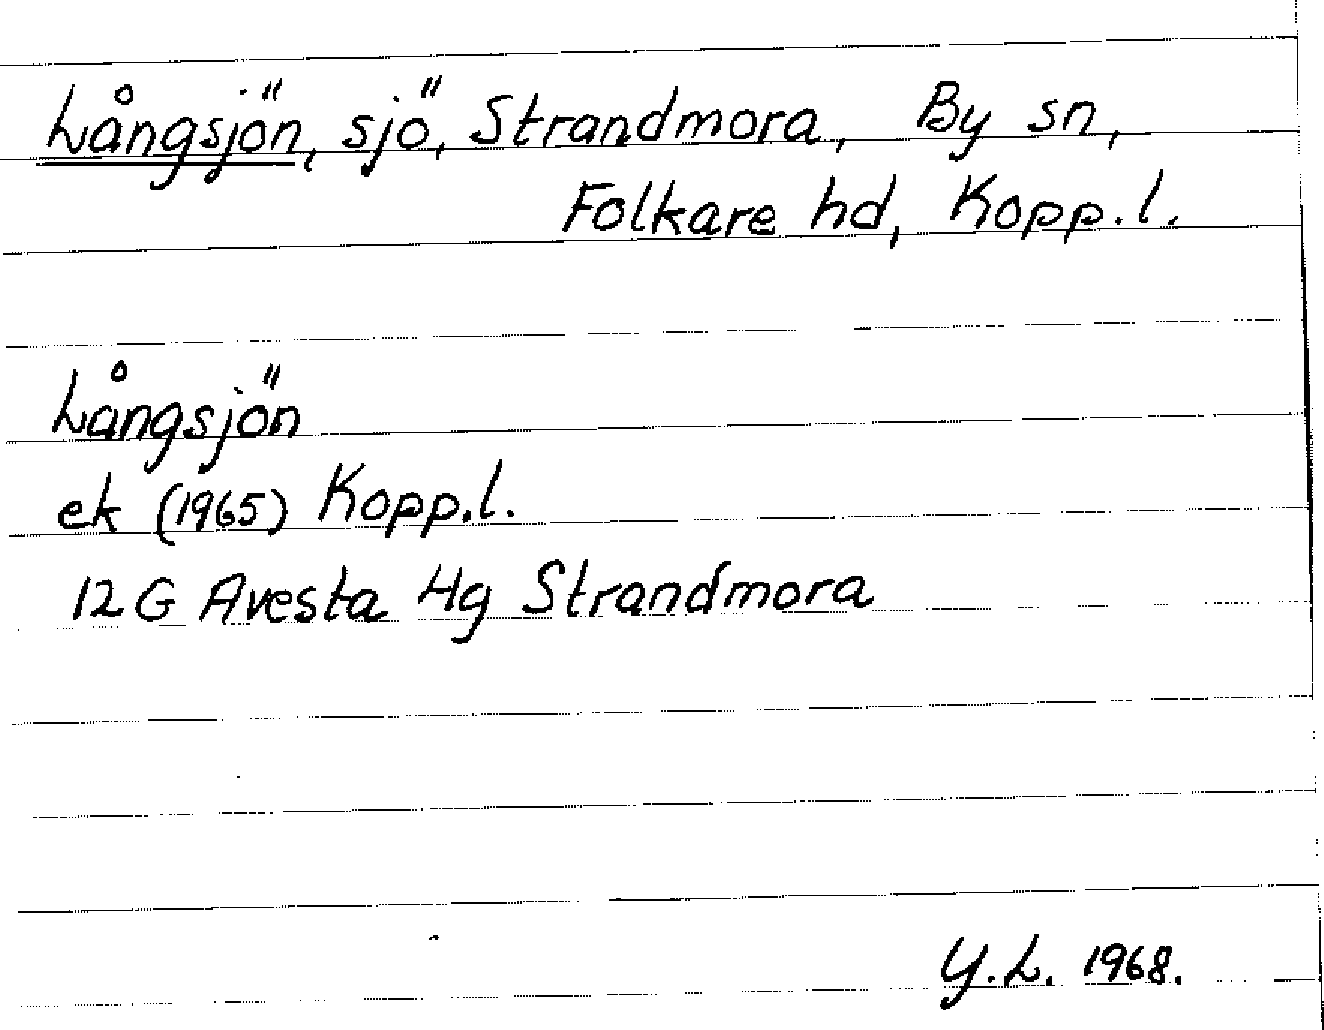 Långsjön, sjö, Strandmora, By sn,
Folkare hd, Kopp.l.
Långsjön
ek (1965) Kopp.l.
12G Avesta 4g Strandmora
Y.L. 1968.